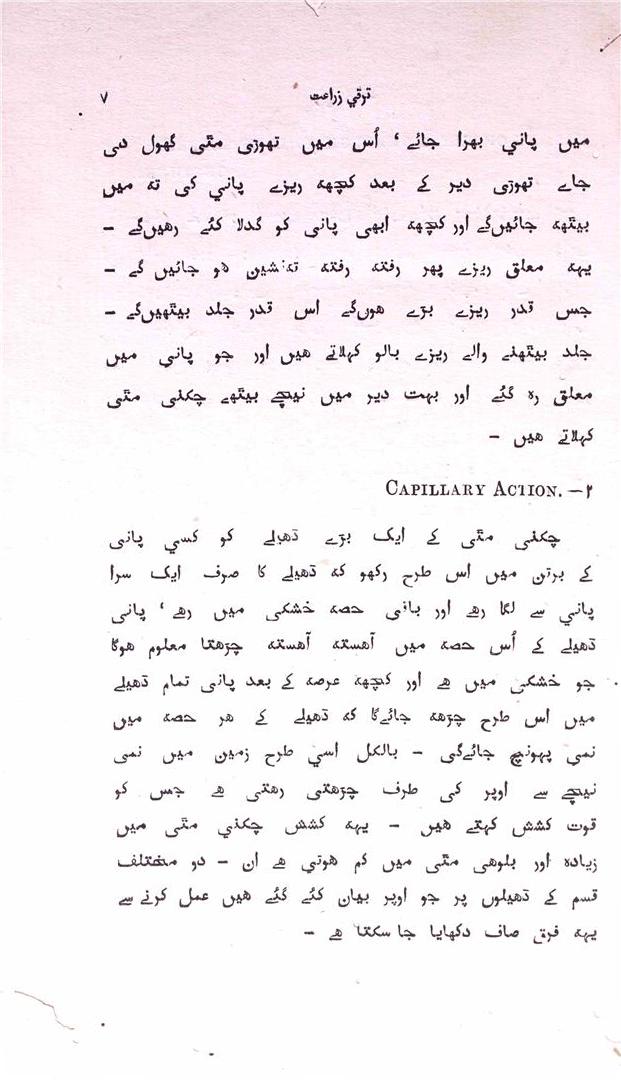 ترقي زراعت ۷
میں پاني بھرا جائے ‘ اُس میں تھوڑي مٿی گھول دی
جاے تھوڑی دیر کے بعد کچھہ ریزے پاني کی تہ میں
بیٿھہ جائیں‌گے اور کچھہ ابھی پانی کو گدلا کئے رھیں‌گے -
یہہ معلق ریزے پھر رفتہ رفتہ تہ‌نشین ھو جائیں گے -
جس قدر ریزے بڑے ھوں‌گے اس قدر جلد بیٿھیں‌گے -
جلد بیٿھنے والے ریزے بالو کہلاتے ھیں اور جو پاني میں
معلق رہ گئے اور بہت دیر میں نیچے بیٿھے چکنی مٿی
کہلاتے ھیں -
۲— CAPILLARY ACTION.
چکنی مٿی کے ایک بڑے ڈھیلے کو کسي پانی
کے برتن میں اس طرح رکھو کہ ڈھیلے کا صرف ایک سرا
پاني سے لگا رھے اور باقی حصہ خشکی میں رھے ‘ پانی
ڈھیلے کے اُس حصہ میں آھستہ آھستہ چڑھتا معلوم ھوگا
جو خشکی میں ھے اور کچھہ عرصہ کے بعد پانی تمام ڈھیلے
میں اس طرح چڑھہ جائے‌گا کہ ڈھیلے کے ھر حصہ میں
نمی پہونچ جائے‌گی - بالکل اسي طرح زمین میں نمی
نیچے سے اوپر کی طرف چڑھتی رھتی ھے جس کو
قوت کشش کہتے ھیں - یہہ کشش چکني مٿی میں
زیادہ اور بلوھی مٿی میں کم ھوتي ھے ان - دو مختلف
قسم کے ڈھیلوں پر جو اوپر بیان کئے گئے ھیں عمل کرنے سے
یہہ فرق صاف دکھایا جا سکتا ھے -